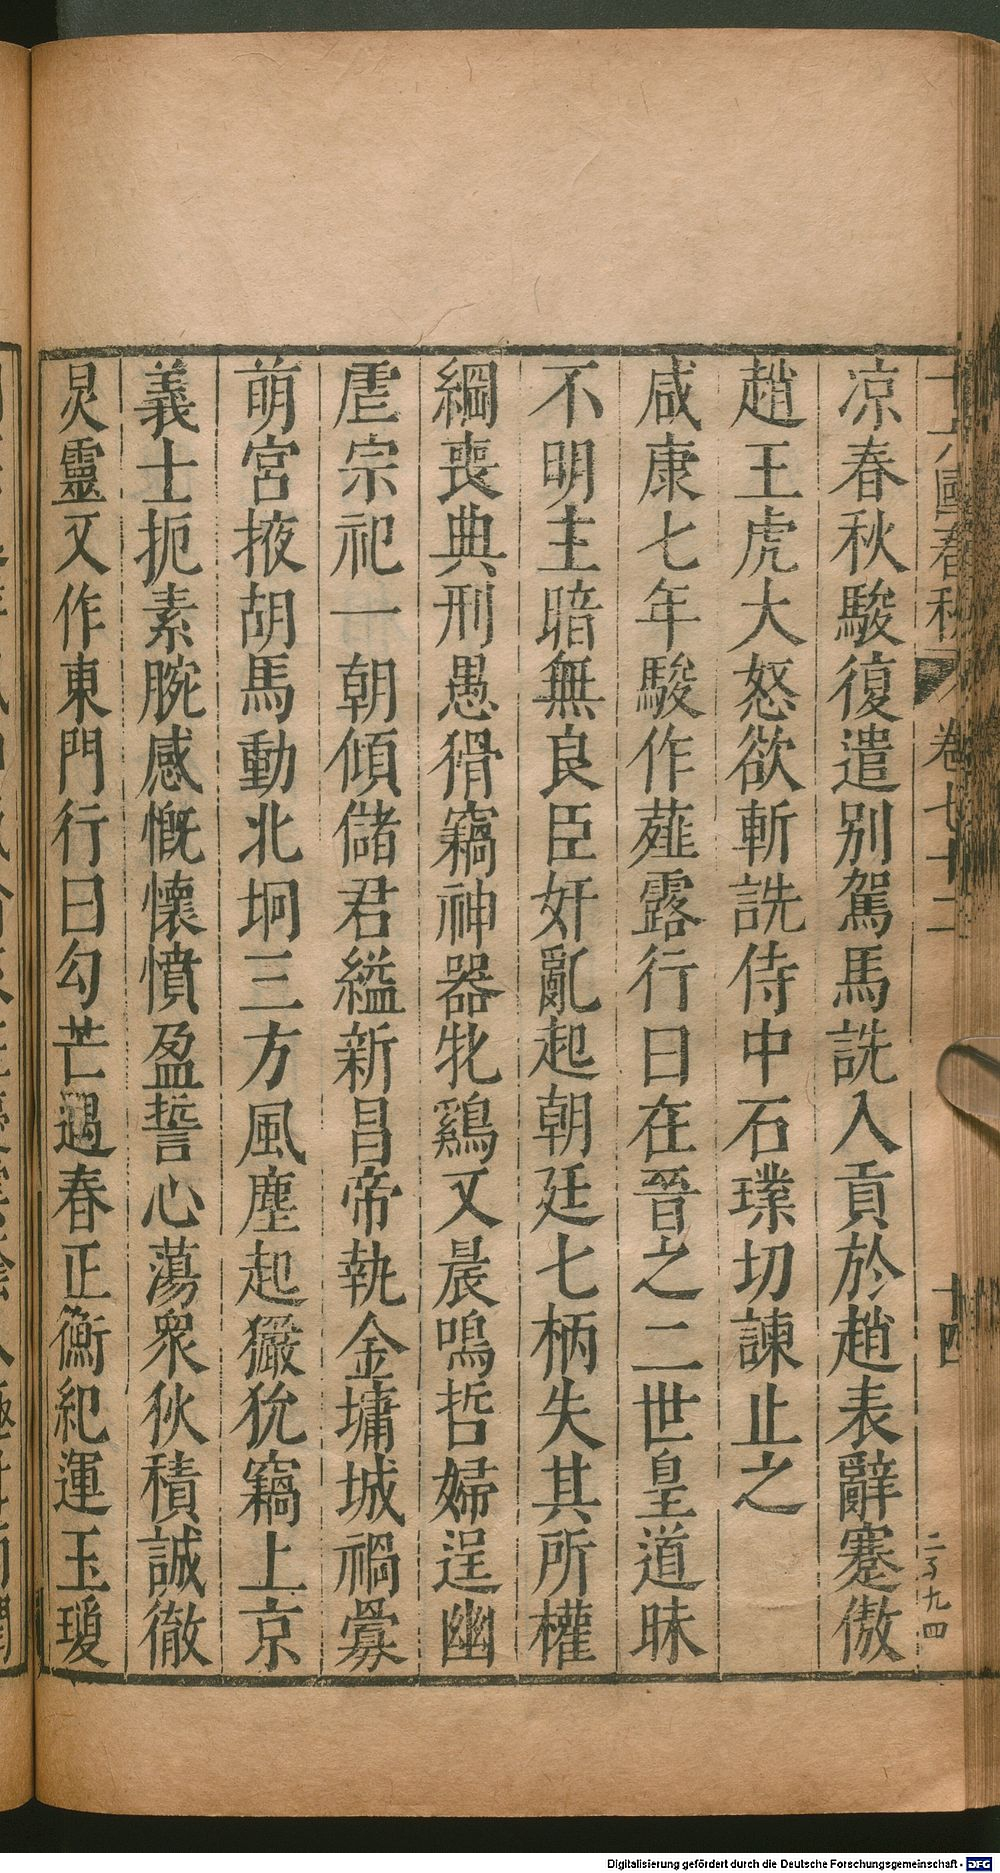 十六國春秋 卷七十二 十四 二百九四
凉春秋駿復遣别駕馬詵入貢於趙表辭蹇傲
趙王虎大怒欲斬詵侍中石璞切諫止之
咸康七年駿作薤露行曰在晉之二世皇道昧
不明主暗無良臣奸亂起朝廷七柄失其所權
綱喪典刑愚猾竊神器牝鷄又晨鳴哲婦逞幽
虐宗祀一朝傾儲君縊新昌帝執金墉城禍釁
萌宮掖胡馬動北坰三方風塵起玁狁竊上京
義士扼素腕感慨懷憤盈誓心蕩衆狄積誠徹
炅靈又作東門行曰勾芒遏春正衡紀運玉瓊
Digitalisierung gefördert durch die Deutsche Forschungsgemeinschaft - DFG